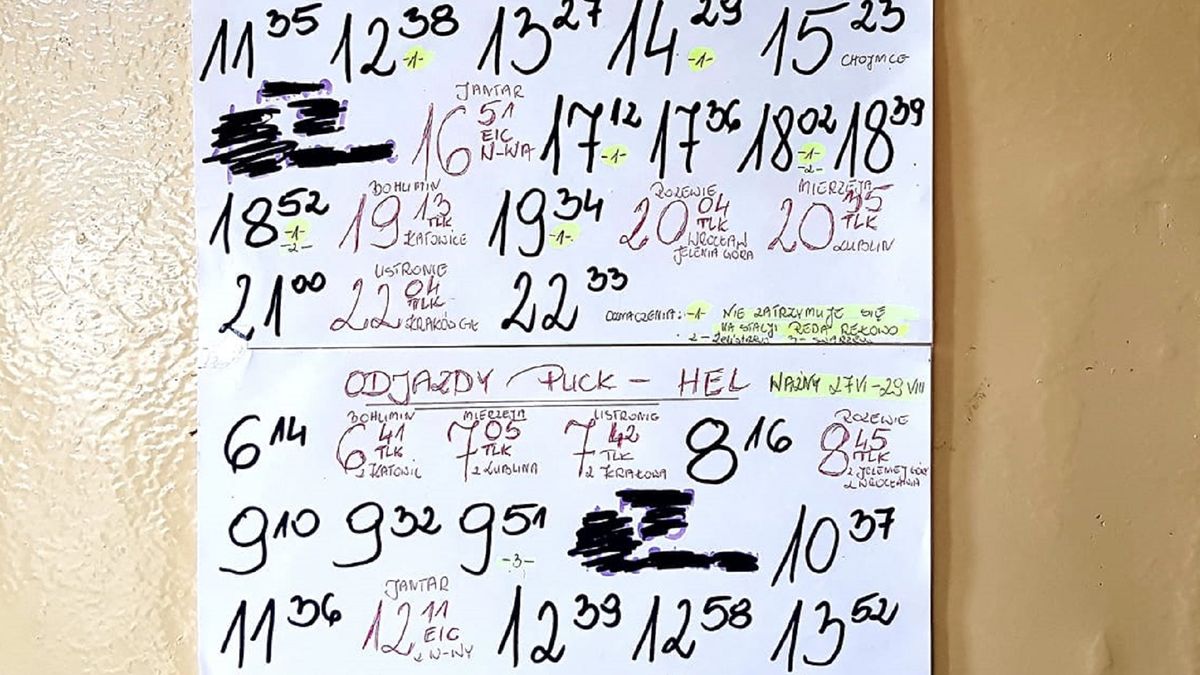 11 35 12 38 -1- 13 27 14 29 -1- 15 23 CHOJNICE
JANTAR
16 51 EIC W-WA 17 12 -1- 17 36 18 02 -1- -2- 18 39
18 52 -1- -2- BOHUMIN 19 13 TLK KATOWICE 19 34 -1- ROZEWIE 20 04 TLK WROCŁAW JELENIA GÓRA MIERZEJA 20 TLK LUBLIN
21 00 USTRONIE 22 04 TLK KRAKÓW GŁ 22 33
OZNACZENIA: -1- NIE ZATRZYMUJE SIĘ
NA STACJI REDA REKOWO
ODJAZDY PUCK - HEL WAŻNY 27 VI - 29 VIII
6 14 BOHUMIN 6 41 TLK Z KATOWIC MIERZEJA 7 05 TLK Z LUBLINA USTRONIE 7 42 TLK Z KRAKOWA 8 16 ROZEWIE 8 45 TLK Z JELENIEJ GÓRY Z WROCŁAWIA
9 10 9 32 9 51 -3- 10 37
11 36 JANTAR 12 11 EIC Z W-WY 12 39 12 58 13 52